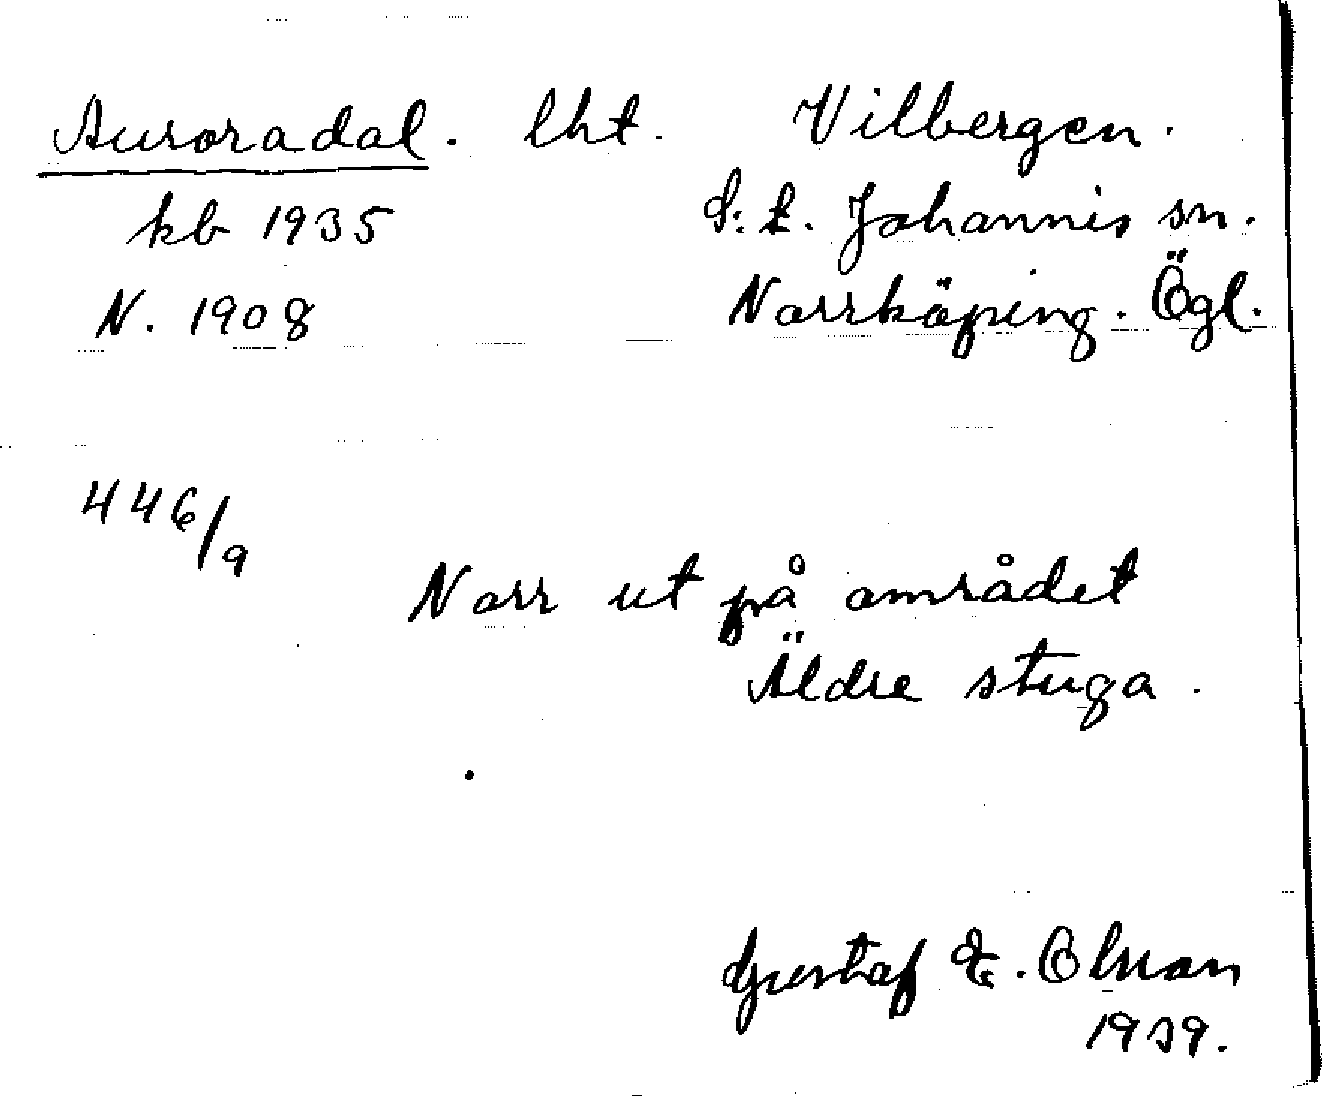 Auroradal. lht. Vilbergen.
kb 1935 S:t. Johannis sn.
N. 1908 Norrköping. Ögl.
446/9
Norr ut på området
Äldre stuga.
Gustaf E. Olsson
1939.